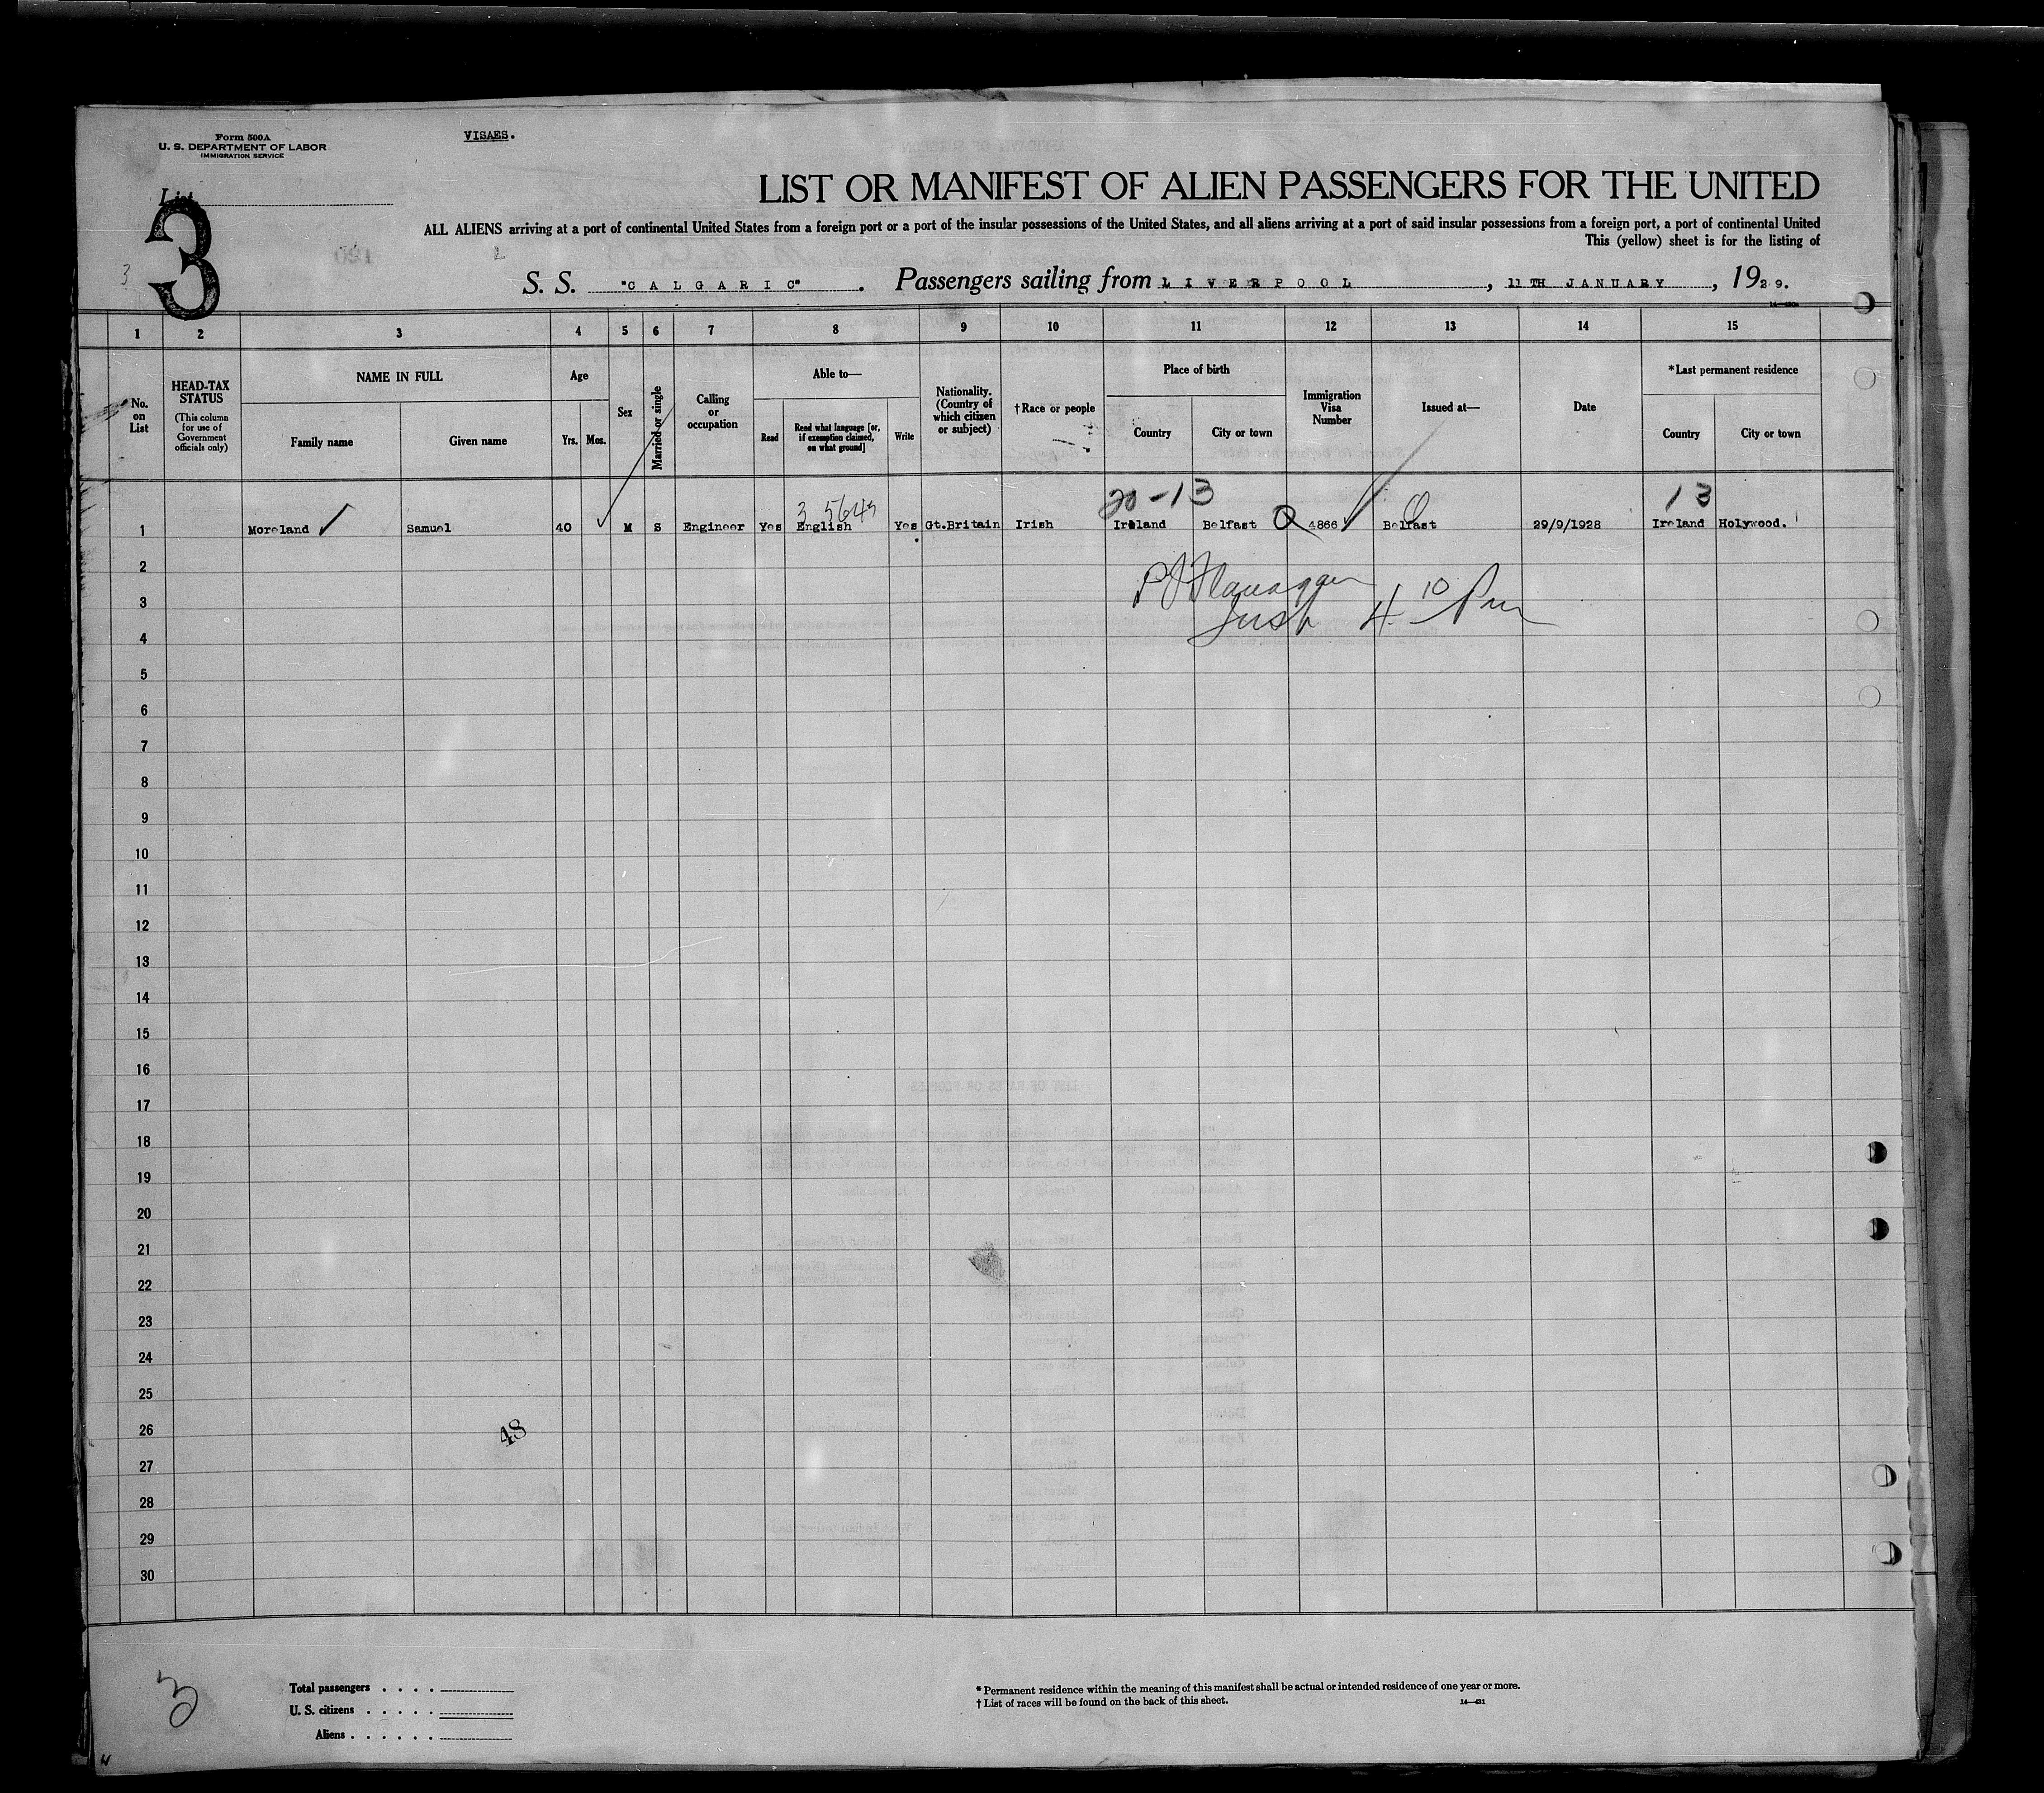 Form 500A
U. S. DEPARTMENT OF LABOR
IMMIGRATION SERVICE
VISAES.
List
3
LIST OR MANIFEST OF ALIEN PASSENGERS FOR THE UNITED
ALL ALIENS arriving at a port of continental United States from a foreign port or a port of the insular possessions of the United States, and all aliens arriving at a port of said insular possessions from a foreign port, a port of continental United
This (yellow) sheet is for the listing of
3
S. S. "CALGARIC". Passengers sailing from LIVERPOOL, 11TH JANUARY, 1929.
1 2 3 4 5 6 7 8 9 10 11 12 13 14 15
No. on List
HEAD-TAX STATUS
(This column for use of Government officials only)
NAME IN FULL
Family name
Given name
Age
Yrs. Mos.
Sex
Married or single
Calling or occupation
Able to—
Read
Read what language [or, if exemption claimed, on what ground]
Write
Nationality. (Country of which citizen or subject)
†Race or people
Place of birth
Country
City or town
Immigration Visa Number
Issued at—
Date
*Last permanent residence
Country
City or town
20-13
13
1 Moreland Samuel 40 M S Engineer Yes English Yes Gt.Britain Irish Ireland Belfast 4866 Belfast 29/9/1928 Ireland Holywood.
2
P J Flanagan
3
Insp 4 10 Pm
4
5
6
7
8
9
10
11
12
13
14
15
16
17
18
19
20
21
22
23
24
25
26
48
27
28
29
30
3
Total passengers . . . .
U. S. citizens . . . . .
Aliens . . . . . .
* Permanent residence within the meaning of this manifest shall be actual or intended residence of one year or more.
† List of races will be found on the back of this sheet.
14—431